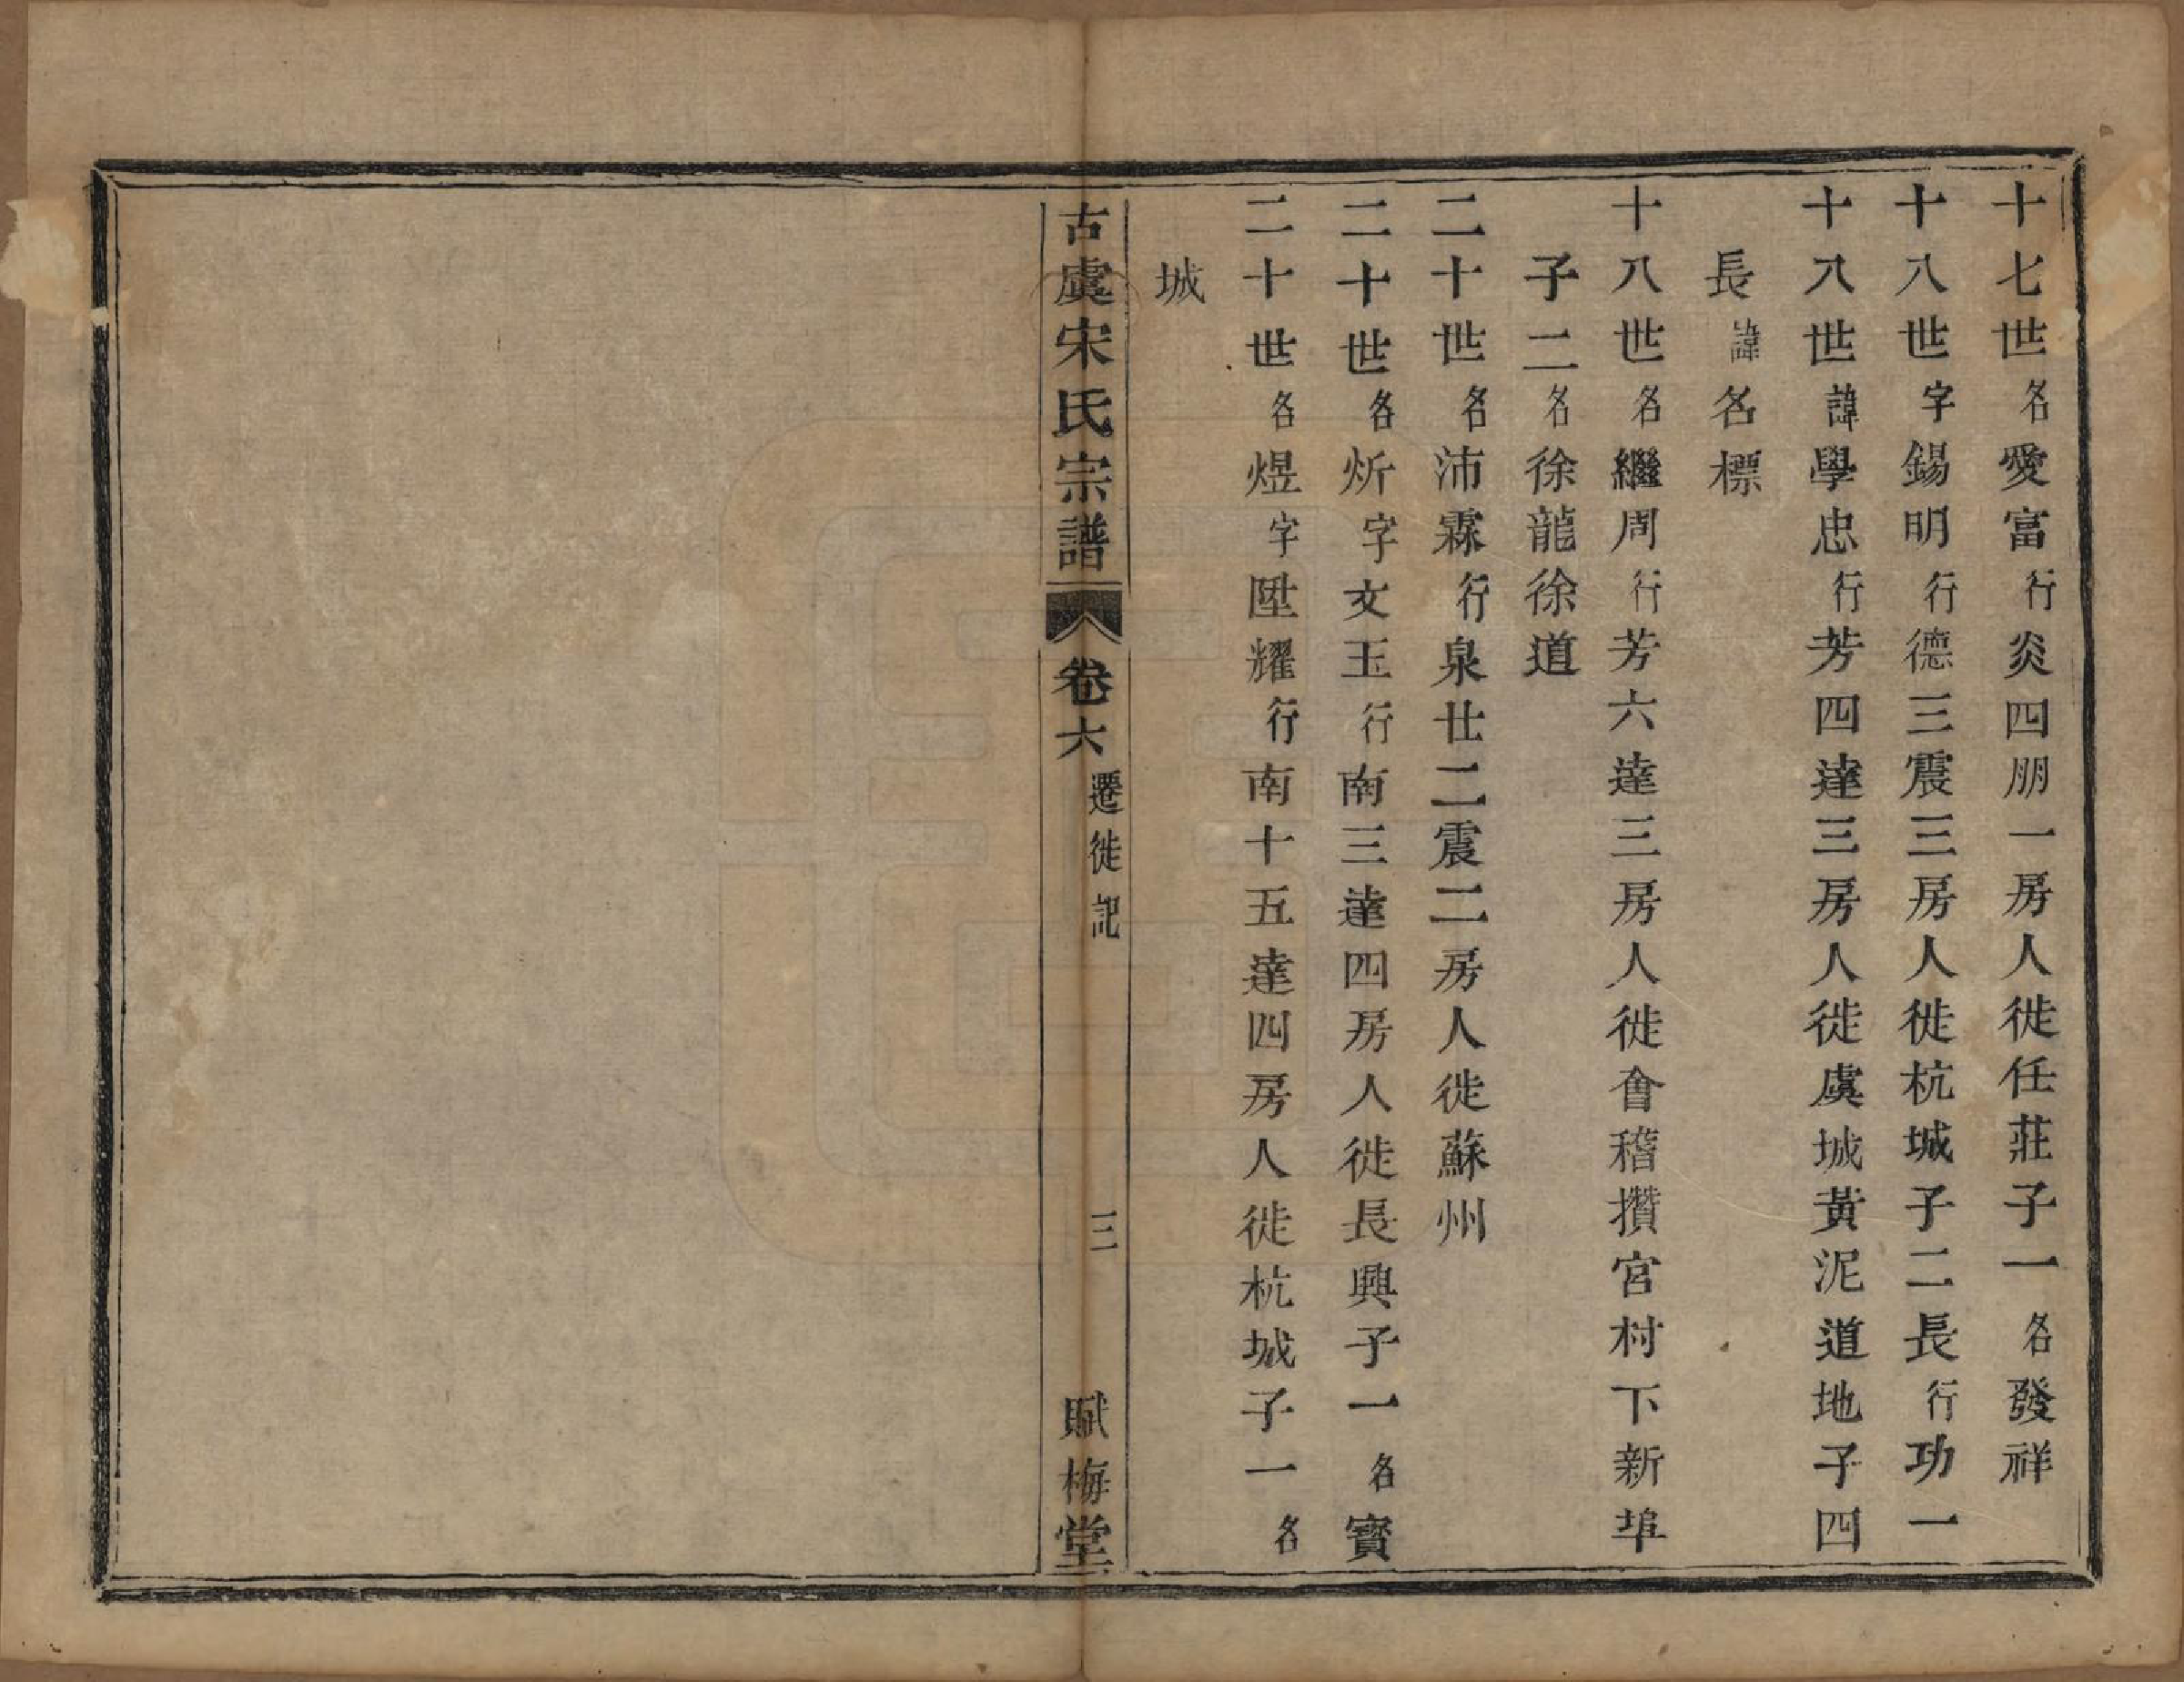 十七世名愛富行炎四朋一房人徙任莊子一名發祥
十八世字錫明行德三震三房人徙杭城子二長行功一
十八世諱學忠行芳四達三房人徙虞城黃泥道地子四
長諱名標
十八世名繼周行芳六達三房人徙會稽攢宮村下新埠
子二名徐龍徐道
二十世名沛霖行泉廿二震二房人徙蘇州
二十世名炘字文玉行南三達四房人徙長興子一名寳
二十世名煜字陞耀行南十五達四房人徙杭城子一名
城
古虞宋氏宗譜 卷六 遷徙記 三 賦梅堂